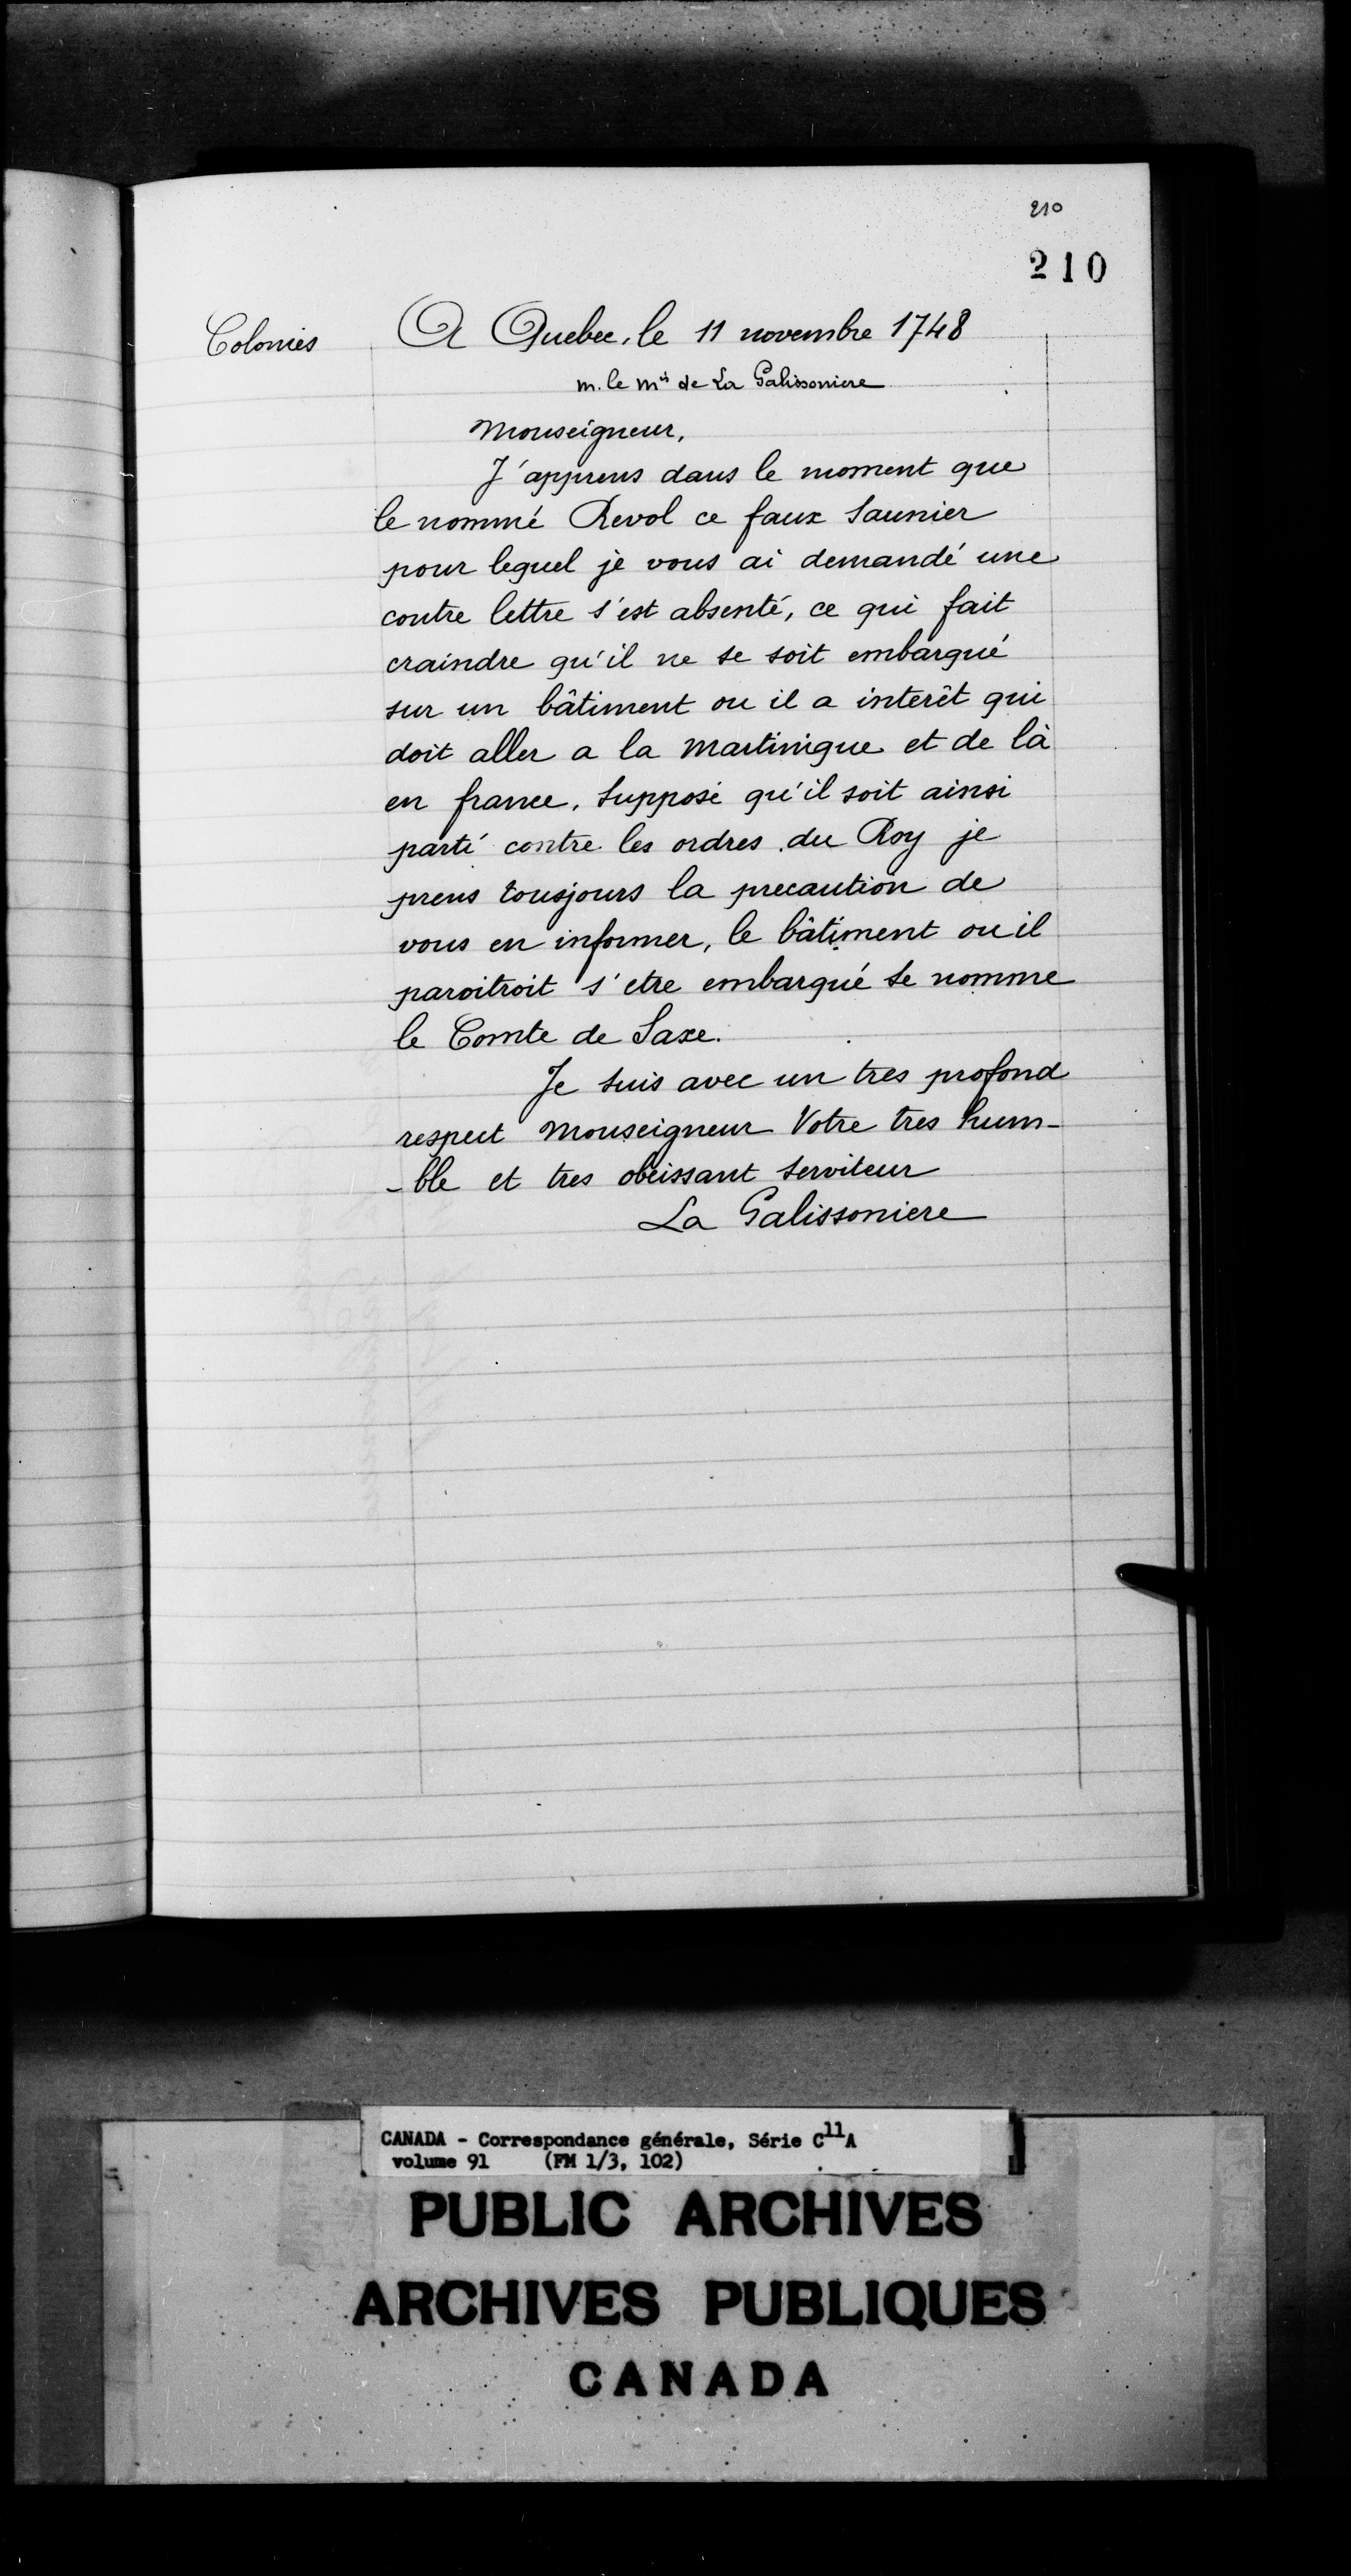 210
210
Colonies
A Quebec, le 11 novembre 1748
m. le mis de La Galissoniere
Monseigneur,
J'apprens dans le moment que
le nommé Revol ce faux Saunier
pour lequel je vous ai demandé une
contre lettre s'est absenté, ce qui fait
craindre qu'il ne se soit embarqué
sur un bâtiment ou il a interêt qui
doit aller a la Martinique et de là
en france. Supposé qu'il soit ainsi
parti contre les ordres du Roy je
prens tousjours la precaution de
vous en informer, le bâtiment ou il
paroitroit s'etre embarqué se nomme
le Comte de Saxe.
Je suis avec un tres profond
respect Monseigneur Votre tres hum-
-ble et tres obeissant serviteur
La Galissoniere
CANADA - Correspondance générale, Série C11A
volume 91 (FM 1/3, 102)
PUBLIC ARCHIVES
ARCHIVES PUBLIQUES
CANADA